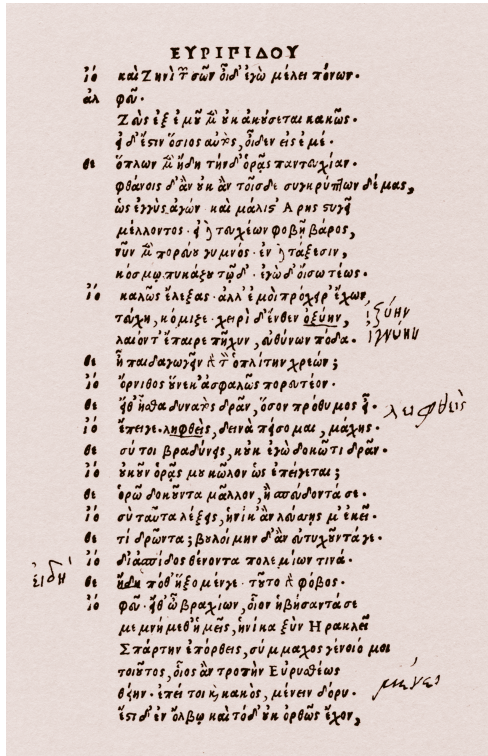 ΕΥΡΙΠΙΔΟΥ
ἰό καὶ Ζηνὶ τῶν σῶν οἶδ' ἐγὼ μέλει πόνων.
ἀλ φεῦ.
Ζεὺς ἐξ ἐμοῦ μὲν οὐκ ἀκούσεται κακῶς.
εἰ δ' ἔστιν ὅσιος αὐτὸς, οἶδεν εἰς ἐμέ.
θε ὅπλων μὲν ἤδη τήνδ' ὁρᾷς παντευχίαν.
φθάνοις δ' ἂν οὐκ ἂν τοῖσδε συγκρύπτων δέμας,
ὡς ἐγγὺς ἀγών. καὶ μάλιστ' Ἄρης στυγεῖ
μέλλοντος. εἰ δὲ τευχέων φοβῇ βάρος,
νῦν μὲν πορεύου γυμνός. ἐν δὲ τάξεσιν,
κόσμῳ πυκάζου τῷδ'. ἐγὼ δ' οἴσω τέως.
ἰό καλῶς ἔλεξας. ἀλλ' ἐμοὶ πρόχειρ' ἔχων
τεύχη, κόμιζε. χειρὶ δ' ἔνθες ὀξύην, ἰξύην
λαιόντ' ἔπαιρε πῆχυν, εὐθύνων πόδα. ἰγνύην
θε ἦ παιδαγωγεῖν γὰρ τὸν ὁπλίτην χρεών;
ἰό ὄρνιθος οὕνεκ' ἀσφαλῶς πορευτέον.
θε εἴθ' ἦσθα δυνατὸς δρᾶν, ὅσον πρόθυμος εἶ.
ἰό ἔπειγε. ληφθεὶς, δεινὰ πείσομαι, μάχης. λειφθεὶς
θε σύ τοι βραδύνεις, κοὐκ ἐγὼ δοκῶ τι δρᾶν.
ἰό οὐκοῦν ὁρᾷς μου κῶλον ὡς ἐπείγεται;
θε ὁρῶ δοκοῦντα μᾶλλον, ἢ σπεύδοντά σε.
ἰό σὺ ταῦτα λέξεις, ἡνίκ' ἂν λεύσσῃς μ' ἐκεῖ.
θε τί δρῶντα; βουλοίμην δ' ἂν εὐτυχοῦντά γε.
ἰό δι' ἀσπίδος θένοντα πολεμίων τινά.
εἰ δή θε ἤδη ποθ' ἥξομέν γε. τοῦτο γὰρ φόβος.
ἰό φεῦ. εἴθ' ὦ βραχίων, οἷον ἡβήσαντά σε
μεμνήμεθ' ἡμεῖς, ἡνίκα ξὺν Ἡρακλεῖ
Σπάρτην ἐπόρθεις, σύμμαχος γένοιό μοι
τοιοῦτος, οἷος ἂν τροπὴν Εὐρυσθέως
θείην. ἐπεί τοι καὶ κακὸς, μένειν δόρυ.
ἔστι δ' ἐν ὄλβῳ καὶ τόδ' οὐκ ὀρθῶς ἔχον,